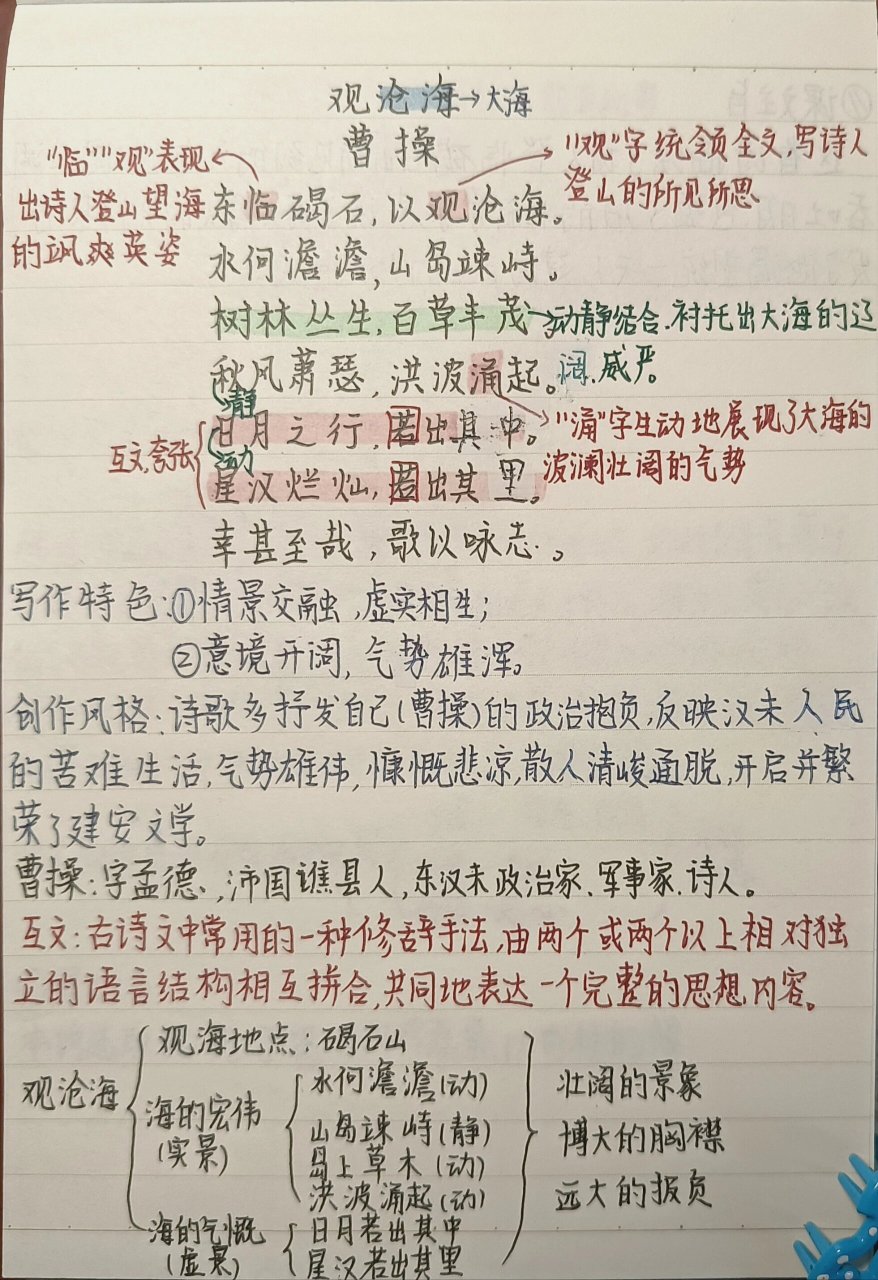 观沧海→大海
曹操
"临""观"表现
出诗人登山望海
的飒爽英姿
"观"字统领全文,写诗人
登山的所见所思
东临碣石,以观沧海。
水何澹澹,山岛竦峙。
树林丛生,百草丰茂→动静结合.衬托出大海的辽
阔.威严。
秋风萧瑟,洪波涌起。
静
日月之行,若出其中。
"涌"字生动地展现了大海的
波澜壮阔的气势
互文,夸张
动
星汉烂灿,若出其里。
幸甚至哉,歌以咏志。
写作特色:①情景交融,虚实相生;
②意境开阔,气势雄浑。
创作风格:诗歌多抒发自己(曹操)的政治抱负,反映汉末人民
的苦难生活,气势雄伟,慷慨悲凉,散人清峻通脱,开启并繁
荣了建安文学。
曹操:字孟德,沛国谯县人,东汉末政治家.军事家.诗人。
互文:古诗文中常用的一种修辞手法,由两个或两个以上相对独
立的语言结构相互拼合,共同地表达一个完整的思想内容。
观沧海
观海地点:碣石山
海的宏伟
(实景)
水何澹澹(动)
山岛竦峙(静)
岛上草木(动)
洪波涌起(动)
海的气慨
(虚景)
日月若出其中
星汉若出其里
壮阔的景象
博大的胸襟
远大的报负